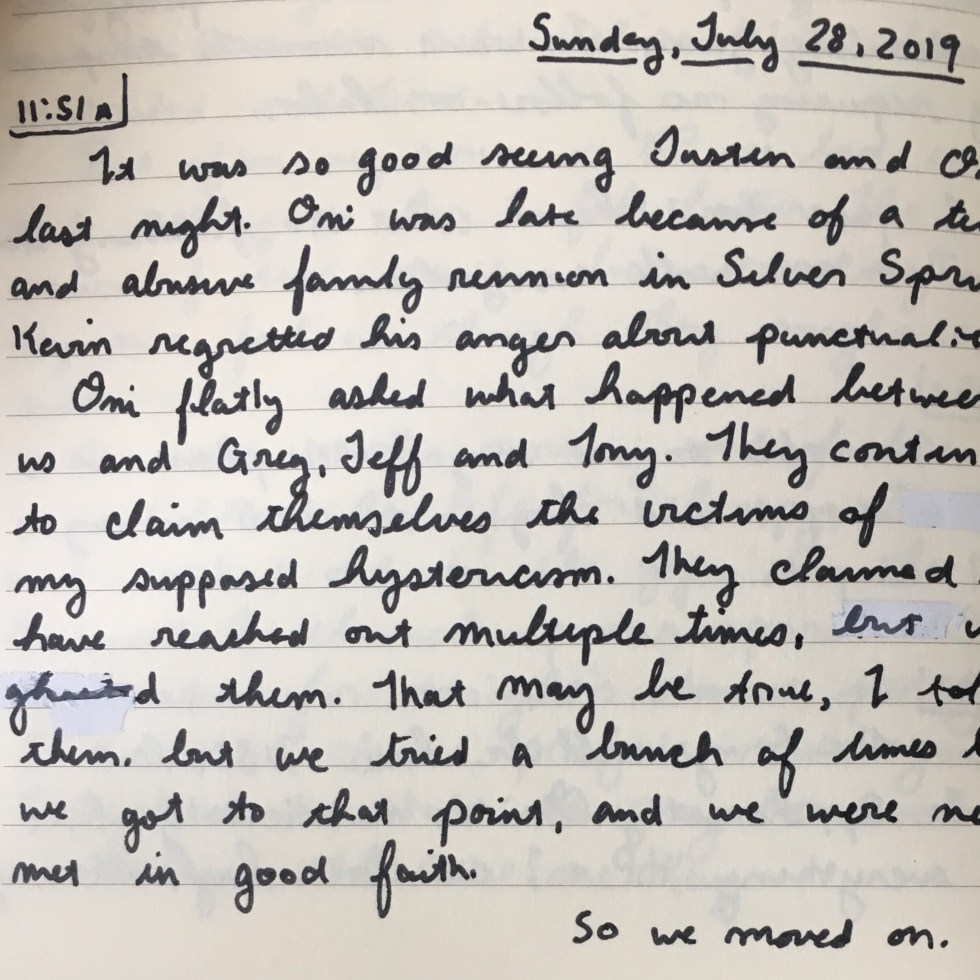 Sunday, July 28, 2019
11:51 A
It was so good seeing Justin and
last night. Oni was late because of a
and abusive family reunion in Silver Spr
Kevin regretted his anger about punctuali
Oni flatly asked what happened betwee
us and Greg, Jeff and Tony. They contin
to claim themselves the victims of
my supposed hystericism. They claimed
have reached out multiple times, but
ghosted them. That may be true, I tol
them, but we tried a bunch of times
we got to that point, and we were
met in good faith.
So we moved on.